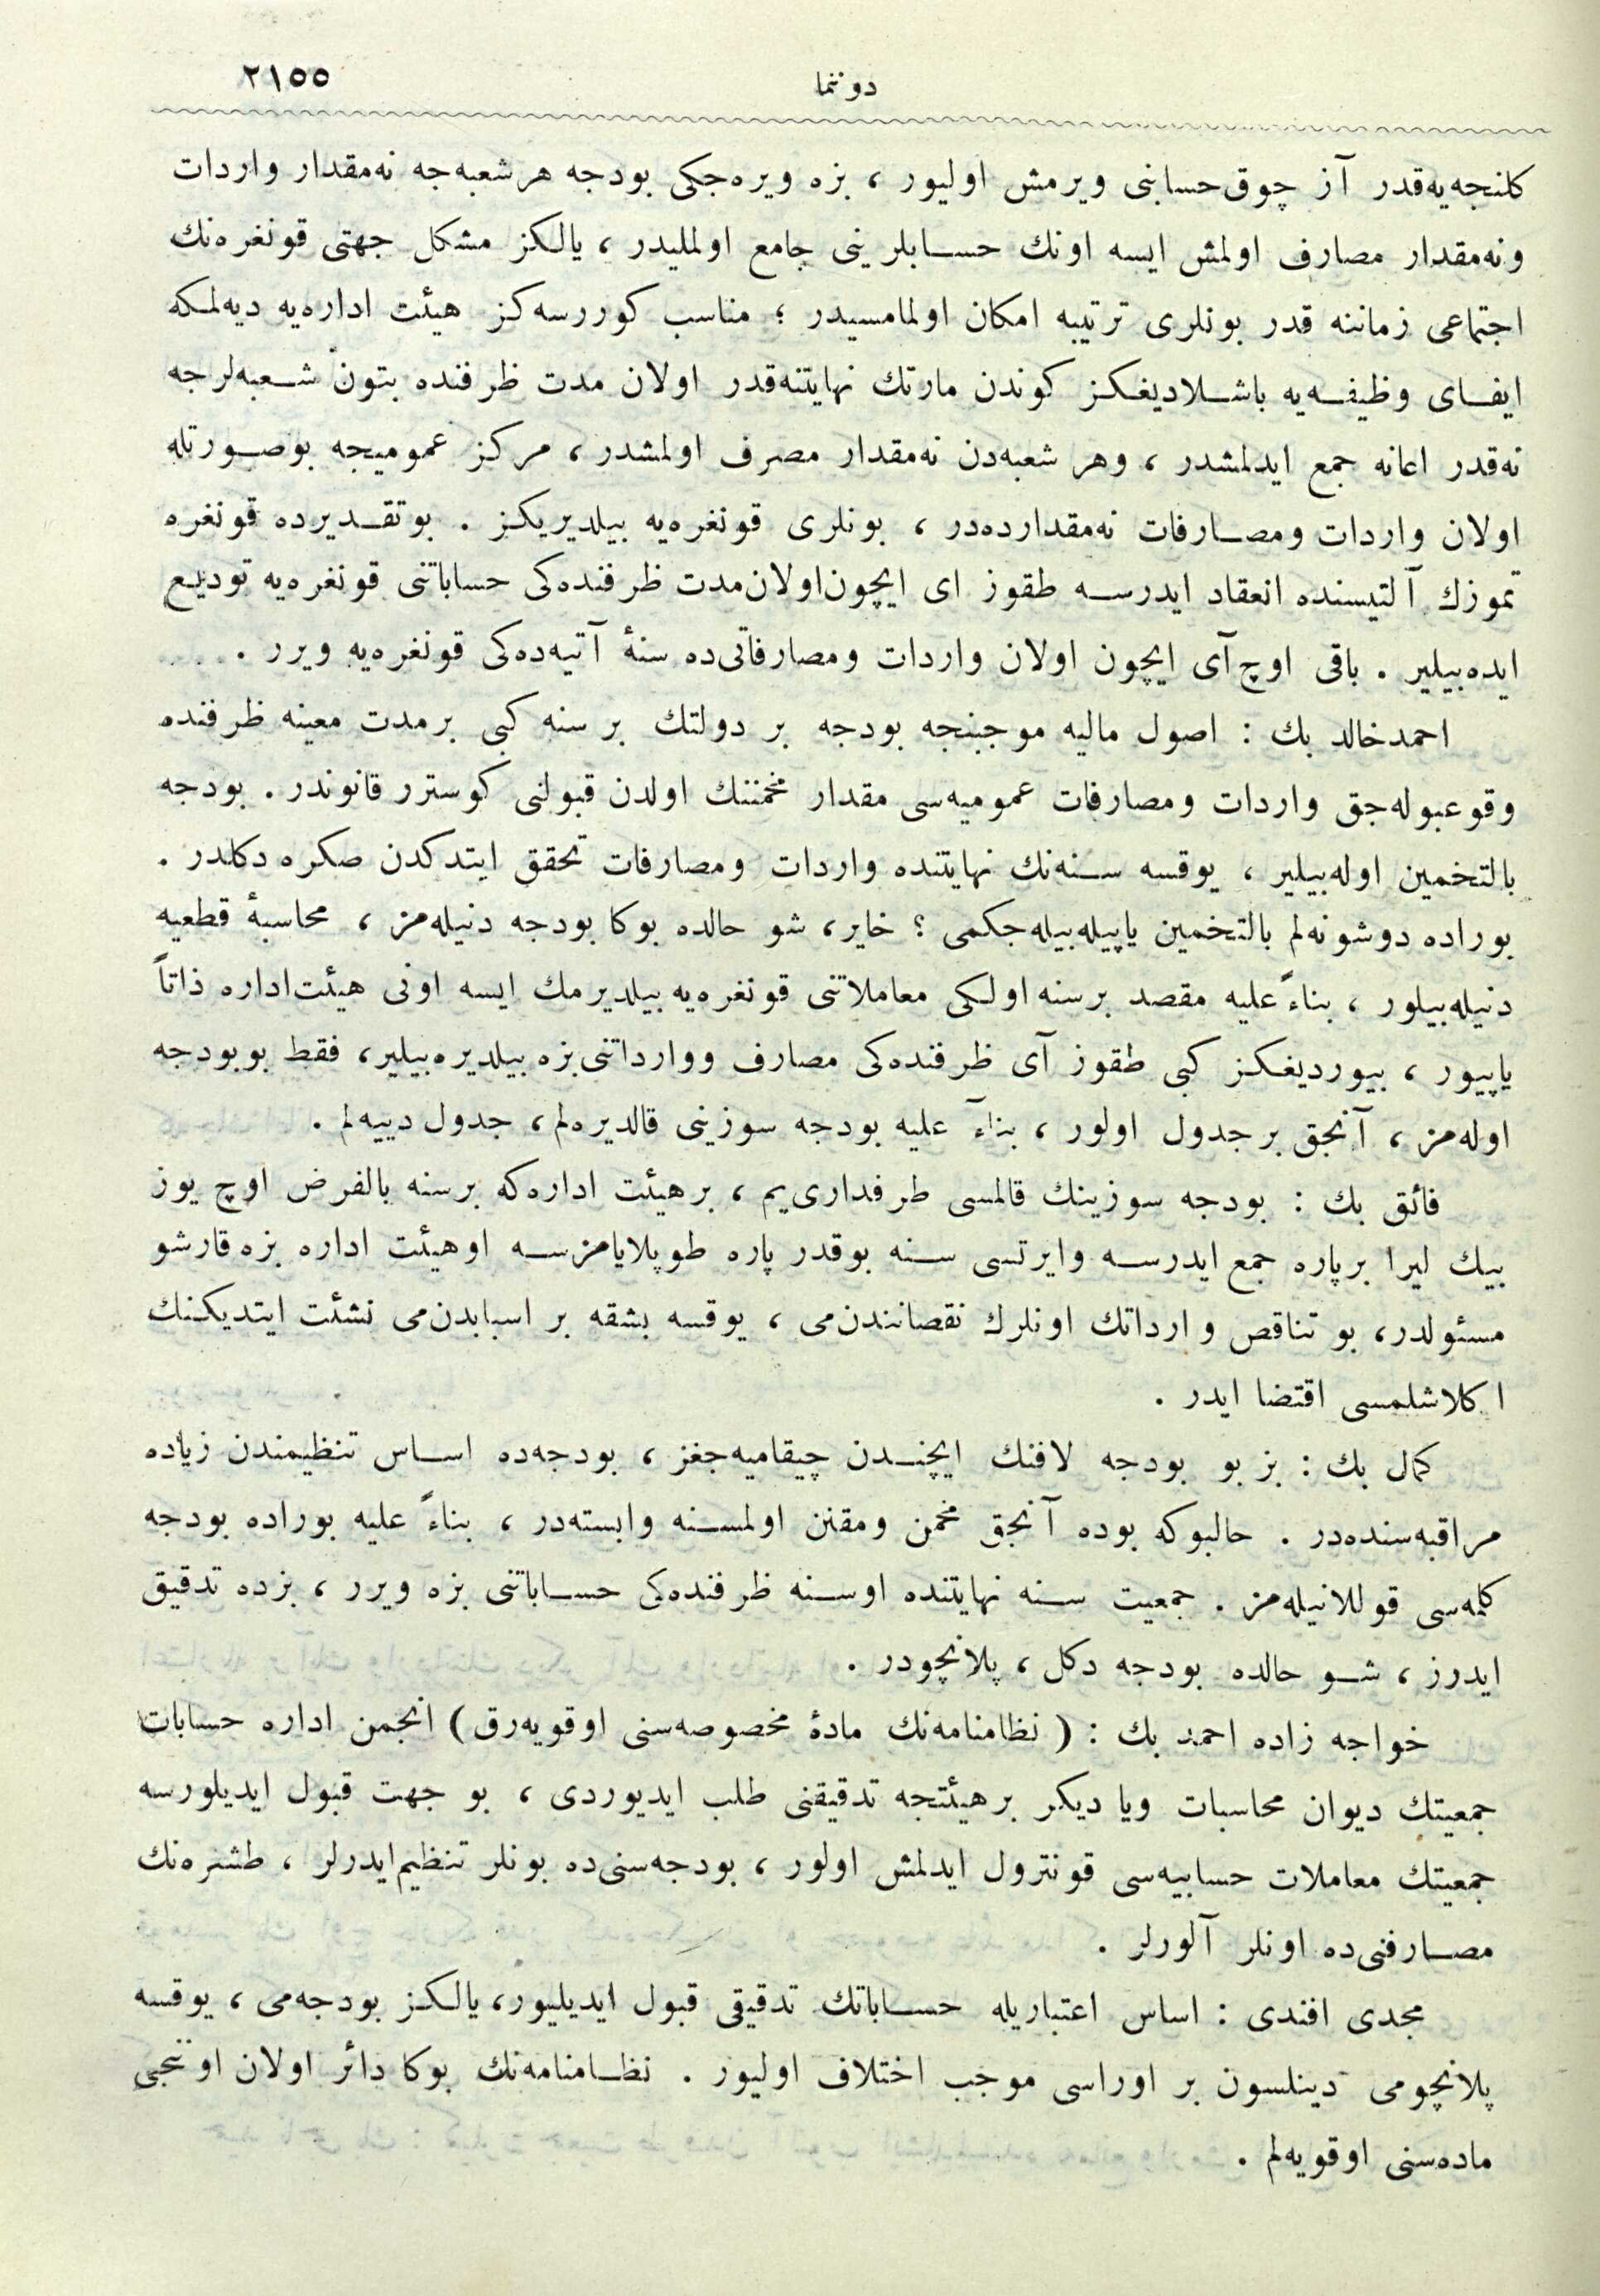 دوننما ٢١٥٥
كلنجه‌يه‌قدر آز چوق حسابنی ويرمش اوليور ، بزه ويره‌جكی بودجه هرشعبه‌جه نه‌مقدار واردات
ونه‌مقدار مصارف اولمش ايسه اونك حسابلرينی جامع اولمليدر ، يالكز مشكل جهتی قونغره‌نك
اجتماعی زماننه قدر بونلری ترتيبه امكان اولمامسيدر ؛ مناسب كوررسه‌كز هيئت اداره‌يه ديه‌لمكه
ايفای وظيفه‌يه باشلاديغكز كوندن مارتك نهايتنه‌قدر اولان مدت ظرفنده بتون شعبه‌لرجه
نه‌قدر اعانه جمع ايدلمشدر ، وهر شعبه‌دن نه‌مقدار مصرف اولمشدر ، مركز عموميجه بوصورتله
اولان واردات ومصارفات نه‌مقدارده‌در ، بونلری قونغره‌يه بيلديريكز . بوتقديرده قونغره
تموزك آلتيسنده انعقاد ايدرسه طقوز ای ايچون اولان مدت ظرفنده‌كی حساباتنی قونغره‌يه توديع
ايده‌بيلير . باقی اوچ آی ايچون اولان واردات ومصارفاتی‌ده سنهٔ آتيه‌ده‌كی قونغره‌يه ويرر .
احمدخالد بك : اصول ماليه موجبنجه بودجه بر دولتك بر سنه كبی برمدت معينه ظرفنده
وقوعبوله‌جق واردات ومصارفات عموميه‌سی مقدار مخمننك اولدن قبولنی كوسترر قانوندر . بودجه
بالتخمين اوله‌بيلير ، يوقسه سنه‌نك نهايتنده واردات ومصارفات تحقق ايتدكدن صكره دكلدر .
بوراده دوشونه‌لم بالتخمين ياپيله‌بيله‌جكمی ؟ خاير، شو حالده بوكا بودجه دنيله‌مز ، محاسبهٔ قطعيه
دنيله‌بيلور ، بناءً عليه مقصد برسنه اولكی معاملاتنی قونغره‌يه بيلديرمك ايسه اونی هيئت‌اداره ذاتاً
ياپيور ، بيورديغكز كبی طقوز آی ظرفنده‌كی مصارف ووارداتنی بزه بيلديره‌بيلير، فقط بوبودجه
اوله‌مز ، آنجق بر جدول اولور ، بناءً عليه بودجه سوزينی قالديره‌لم ، جدول دييه‌لم .
فائق بك : بودجه سوزينك قالمسی طرفداری‌يم ، برهيئت اداره‌كه برسنه بالفرض اوچ يوز
بيك ليرا برپاره جمع ايدرسه وايرتسی سنه بوقدر پاره طوپلايامزسه اوهيئت اداره بزه قارشو
مسئولدر، بو تناقص وارداتك اونلرك نقصانندن‌می ، يوقسه بشقه بر اسبابدن‌می نشئت ايتديكنك
اكلاشلمسی اقتضا ايدر .
كمال بك : بز بو بودجه لافنك ايچندن چيقاميه‌جغز ، بودجه‌ده اساس تنظيمندن زياده
مراقبه‌سنده‌در . حالبوكه بوده آنجق مخمن ومقنن اولمسنه وابسته‌در ، بناءً عليه بوراده بودجه
كلمه‌سی قوللانيله‌مز . جمعيت سنه نهايتنده اوسنه ظرفنده‌كی حساباتنی بزه ويرر ، بزده تدقيق
ايدرز ، شو حالده بودجه دكل ، پلانچودر .
خواجه زاده احمد بك : ( نظامنامه‌نك مادهٔ مخصوصه‌سنی اوقويه‌رق ) انجمن اداره حسابات
جمعيتك ديوان محاسبات ويا ديكر برهيئتجه تدقيقنی طلب ايديوردی ، بو جهت قبول ايديلورسه
جمعيتك معاملات حسابيه‌سی قونترول ايدلمش اولور ، بودجه‌سنی‌ده بونلر تنظيم‌ايدرلر ، طشره‌نك
مصارفنی‌ده اونلر آلورلر .
مجدی افندی : اساس اعتباريله حساباتك تدقيقی قبول ايديليور، يالكز بودجه‌می ، يوقسه
پلانچومی دينلسون بر اوراسی موجب اختلاف اوليور . نظامنامه‌نك بوكا دائر اولان اوننجی
ماده‌سنی اوقويه‌لم .